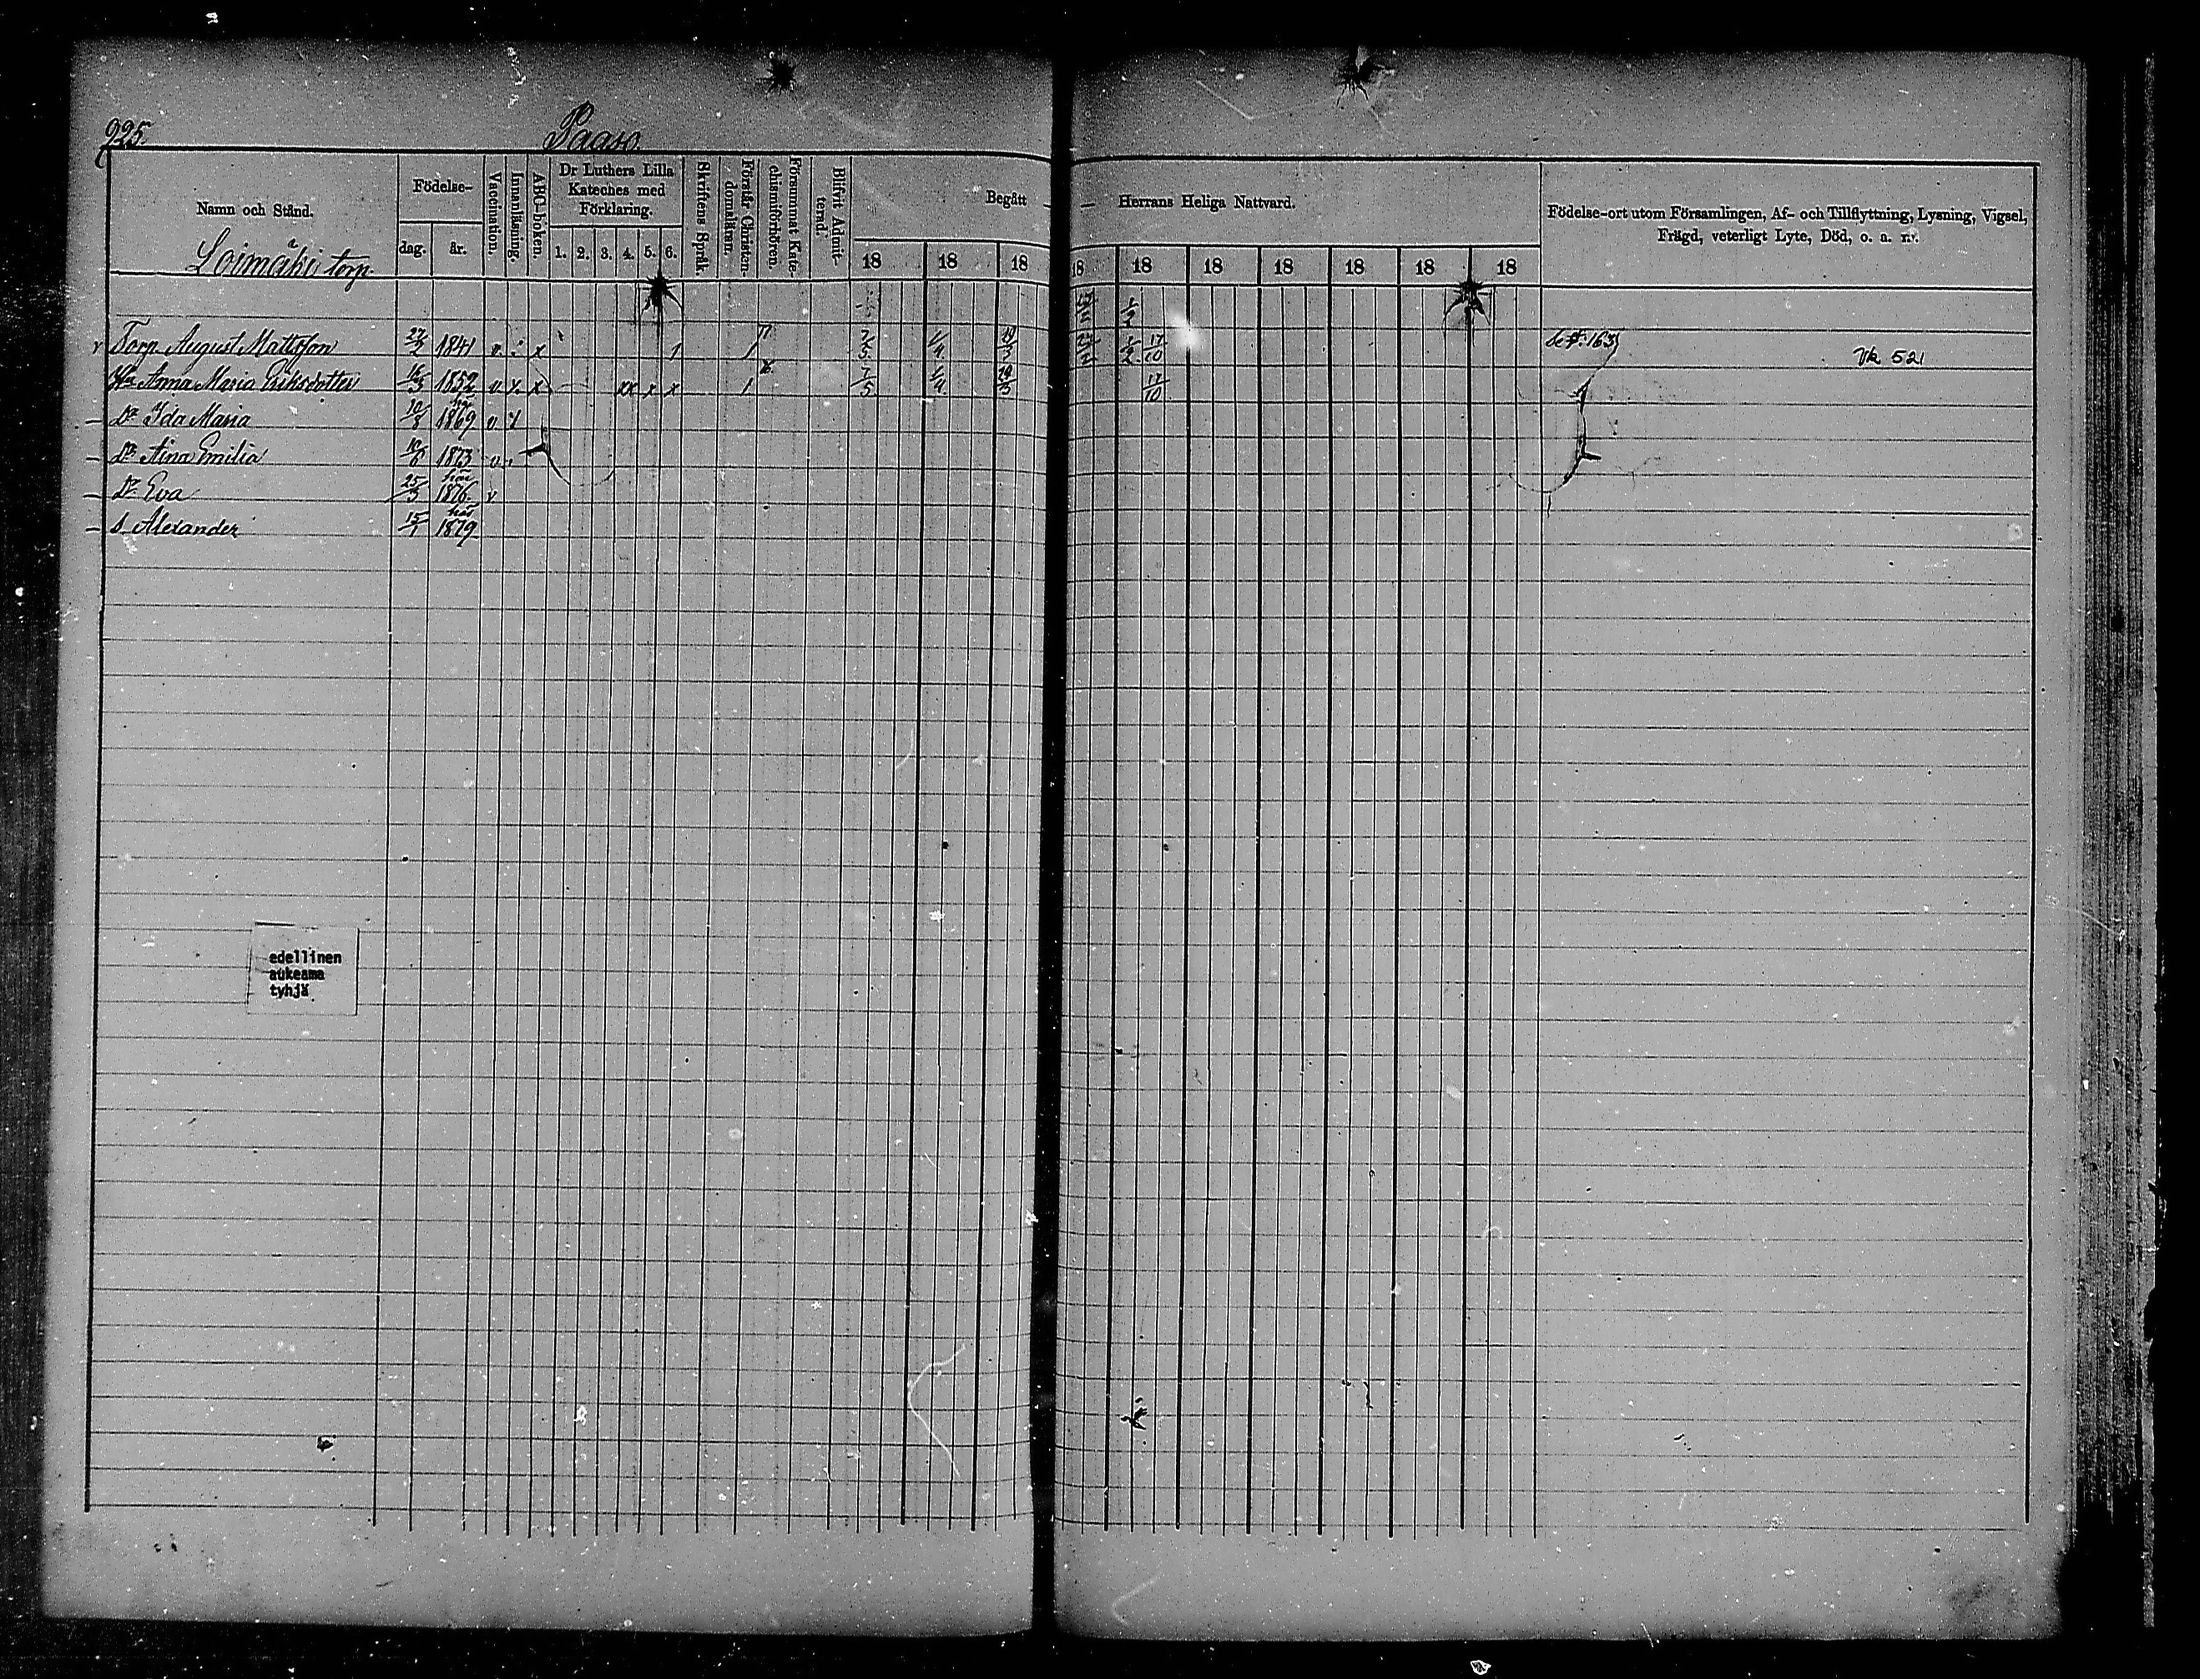 225.
Paaso
Namn och Stånd.
Födelse-
dag.
år.
Vaccination.
Innanläsning.
ABC-boken.
Dr Luthers Lilla
Kateches med
Förklaring.
1. 2. 3. 4. 5. 6.
Skriftens Språk.
Förstår Christen-
domsläran.
Försummat Kate-
chismiförhören.
Blifvit Admit-
terad.
Begått
Herrans Heliga Nattvard.
18 18 18
18 18 18 18 18 18 18
Födelse-ort utom Församlingen, Af- och Tillflyttning, Lysning, Vigsel,
Frägd, veterligt Lyte, Död, o. a. m.
Loimäki torp
Torp. August Mattsson 27/2 1841 v x 1 1 7/5 1/4 19/3 1/2 17/10 Vk 521
Hu Anna Maria Eriksdotter 16/3 1852 v x x xx x x 1 7/5 1/4 19/3 17/10
Dr Ida Maria 10/8 1869 v
Dr Aina Emilia 1873 v
Dr Eva 25/3 1876 v
s. Alexander 15/1 1879
edellinen
aukeama
tyhjä